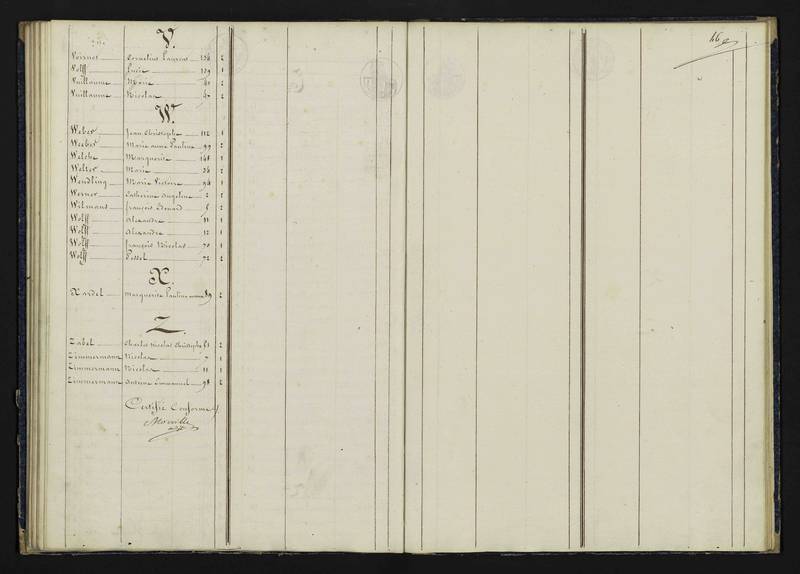 V.
Voirnot Cornelius Laurent 136 2
Wolff Lucie 129 1
Vuillaume Marie 41 2
Vuillaume Nicolas 47 2
W.
Weber Jean Christophe 112 1
Weeber Marie anne Pauline 99 2
Welche Marguerite 148 1
Welter Marie 36 2
Wendling Marie Victoire 96 1
Werner Catherine Angeline 2 2
Wilmans françois Edouard 5 2
Wolff Alexandre 11 1
Wolff Alexandre 12 1
Wolff françois Nicolas 70 1
Wolff 72 2
X.
Xardel Marguerite Pauline 89 2
Z.
Zabel Charles Nicolas Christophe 51 2
Zimmermann Nicolas 7 1
Zimmermann Nicolas 11 1
Zimmermann Antoine Emmanuel 98 2
Certifié Conforme